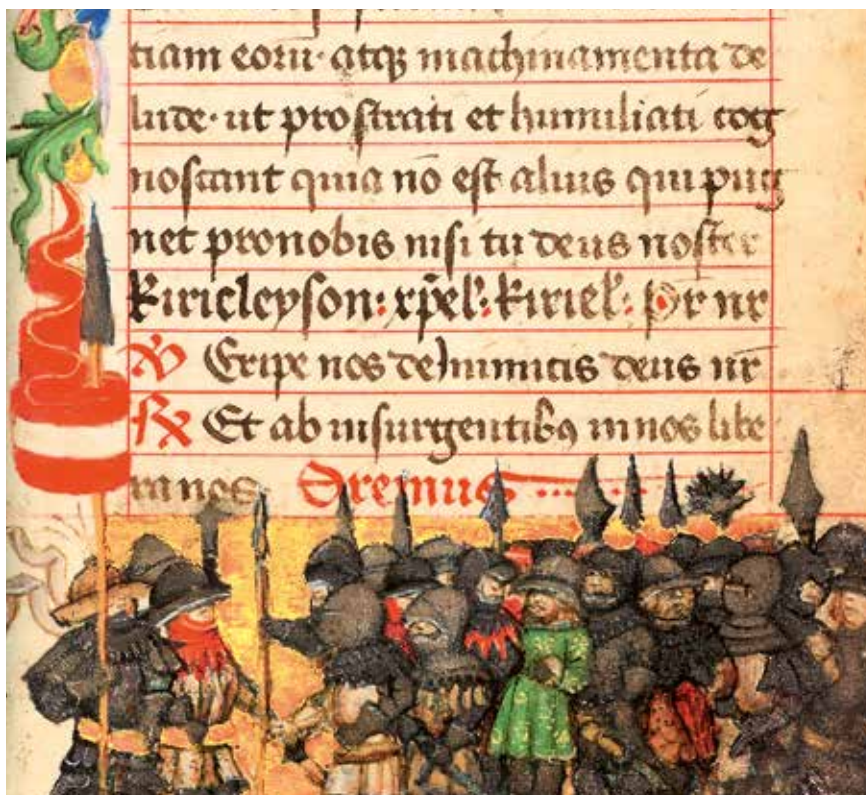 tiam eorū· atqꝫ machinamenta de
lude· ut prostrati et humiliati cog
noscant quia nō est alius qui pug
net pro nobis nisi tu deus noster
kirieleyson: xp̄el': kiriel': Pr̄ nr̄
℣ Eripe nos de inimicis deus nr̄
℟ Et ab insurgentibꝰ in nos libe
ra nos· Oremus